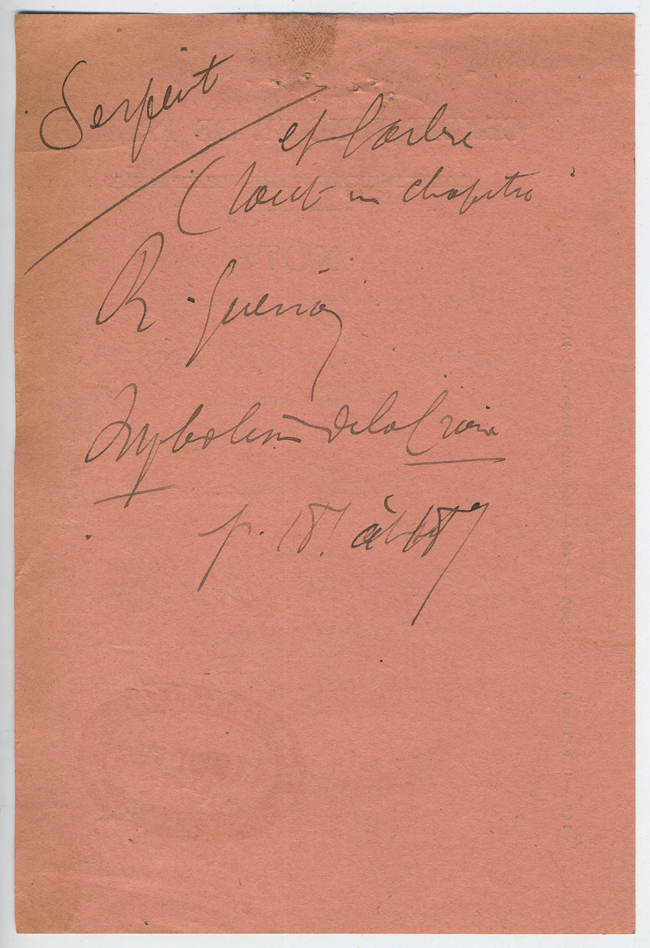 Serpent
et l'arbre
(tout un chapitre
R. Guénon
Symbolisme de la Croix
p. 181 à 187